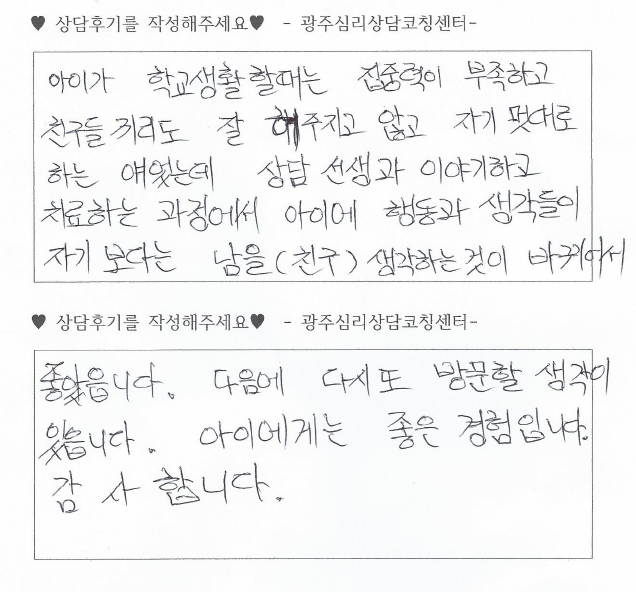 ♥ 상담후기를 작성해주세요♥ - 광주심리상담코칭센터-
아이가 학교생활 할때는 집중력이 부족하고
친구들 끼리도 잘 해주지고 않고 자기 멋대로
하는 얘였는데 상담 선생과 이야기하고
치료하는 과정에서 아이에 행동과 생각들이
자기 보다는 남을(친구) 생각하는것이 바뀌어서
♥ 상담후기를 작성해주세요♥ - 광주심리상담코칭센터-
좋았읍니다. 다음에 다시또 방문할 생각이
있읍니다. 아이에게는 좋은 경험입니다.
감사합니다.